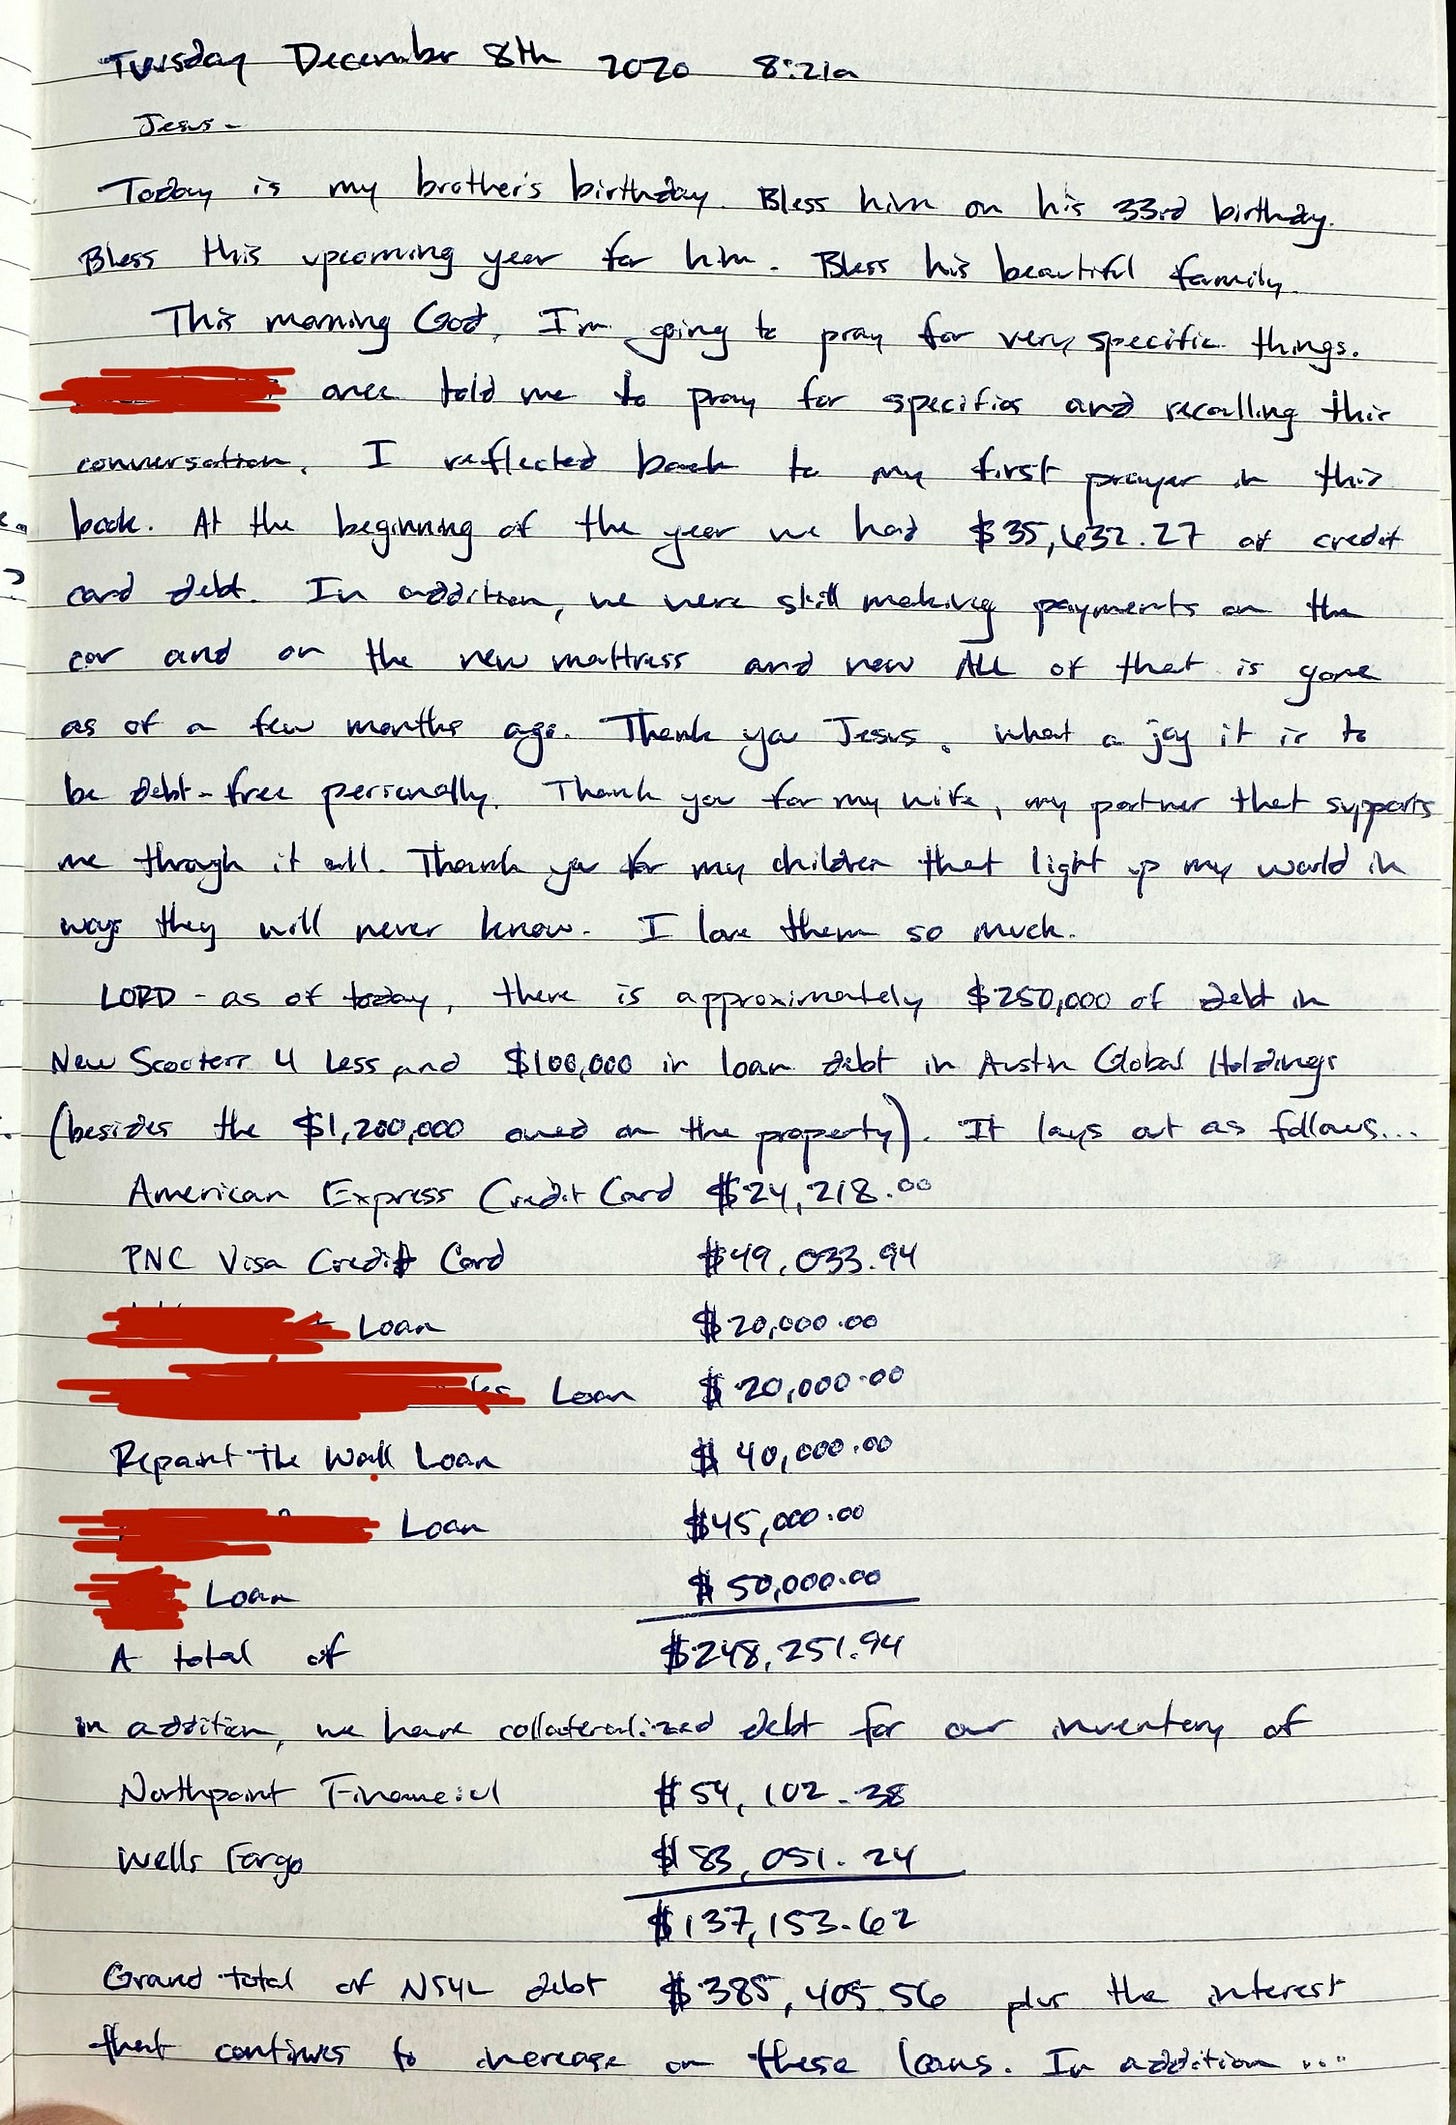 Tuesday December 8th 2020 8:21a
Jesus-
Today is my brother's birthday. Bless him on his 33rd birthday.
Bless this upcoming year for him. Bless his beautiful family.
This morning God, I'm going to pray for very specific things.
once told me to pray for specifics and recalling this
conversation, I reflected back to my first prayer in this
book. At the beginning of the year we had $35,632.27 of credit
card debt. In addition, we were still making payments on the
car and on the new mattress and now ALL of that is gone
as of a few months ago. Thank you Jesus. What a joy it is to
be debt-free personally. Thank you for my wife, my partner that supports
me through it all. Thank you for my children that light up my world in
ways they will never know. I love them so much.
LORD - as of today, there is approximately $250,000 of debt in
New Scooters 4 Less and $100,000 in loan debt in Austin Global Holdings
(besides the $1,200,000 owed on the property). It lays out as follows...
American Express Credit Card $24,218.00
PNC Visa Credit Card $49,033.94
Loan $20,000.00
Loan $20,000.00
Repaint The Wall Loan $40,000.00
Loan $45,000.00
Loan $50,000.00
A total of $248,251.94
in addition, we have collateralized debt for our inventory of
Northpoint Financial $54,102.38
Wells Fargo $83,051.24
$137,153.62
Grand total of NS4L debt $385,405.56 plus the interest
that continues to increase on these loans. In addition ....